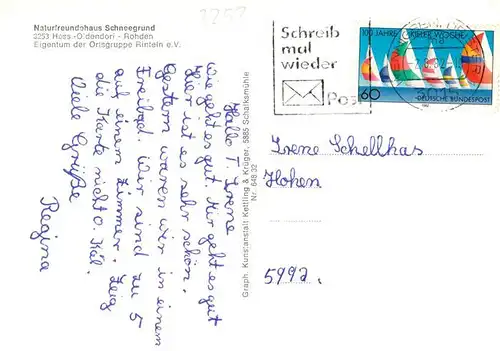 Naturfreundehaus Schneegrund
3253 Hess.-Oldendorf - Rohden
Eigentum der Ortsgruppe Rinteln e.V.
Hallo T. Irene
wie geht es gut. Mir geht es gut
Hier ist es sehr schön.
Gestern waren wir in einem
Freibad. Wir sind zu 5
auf einem Zimmer. Zeig
die Karte nicht O. Käl.
Viele Grüße
Regina
Graph. Kunstanstalt Kettling & Krüger, 5885 Schalksmühle
Nr. 648.32
Schreib
mal
wieder
Post
100 JAHRE KIELER WOCHE
60
DEUTSCHE BUNDESPOST
Irene Schellhas
Hohen
5992.